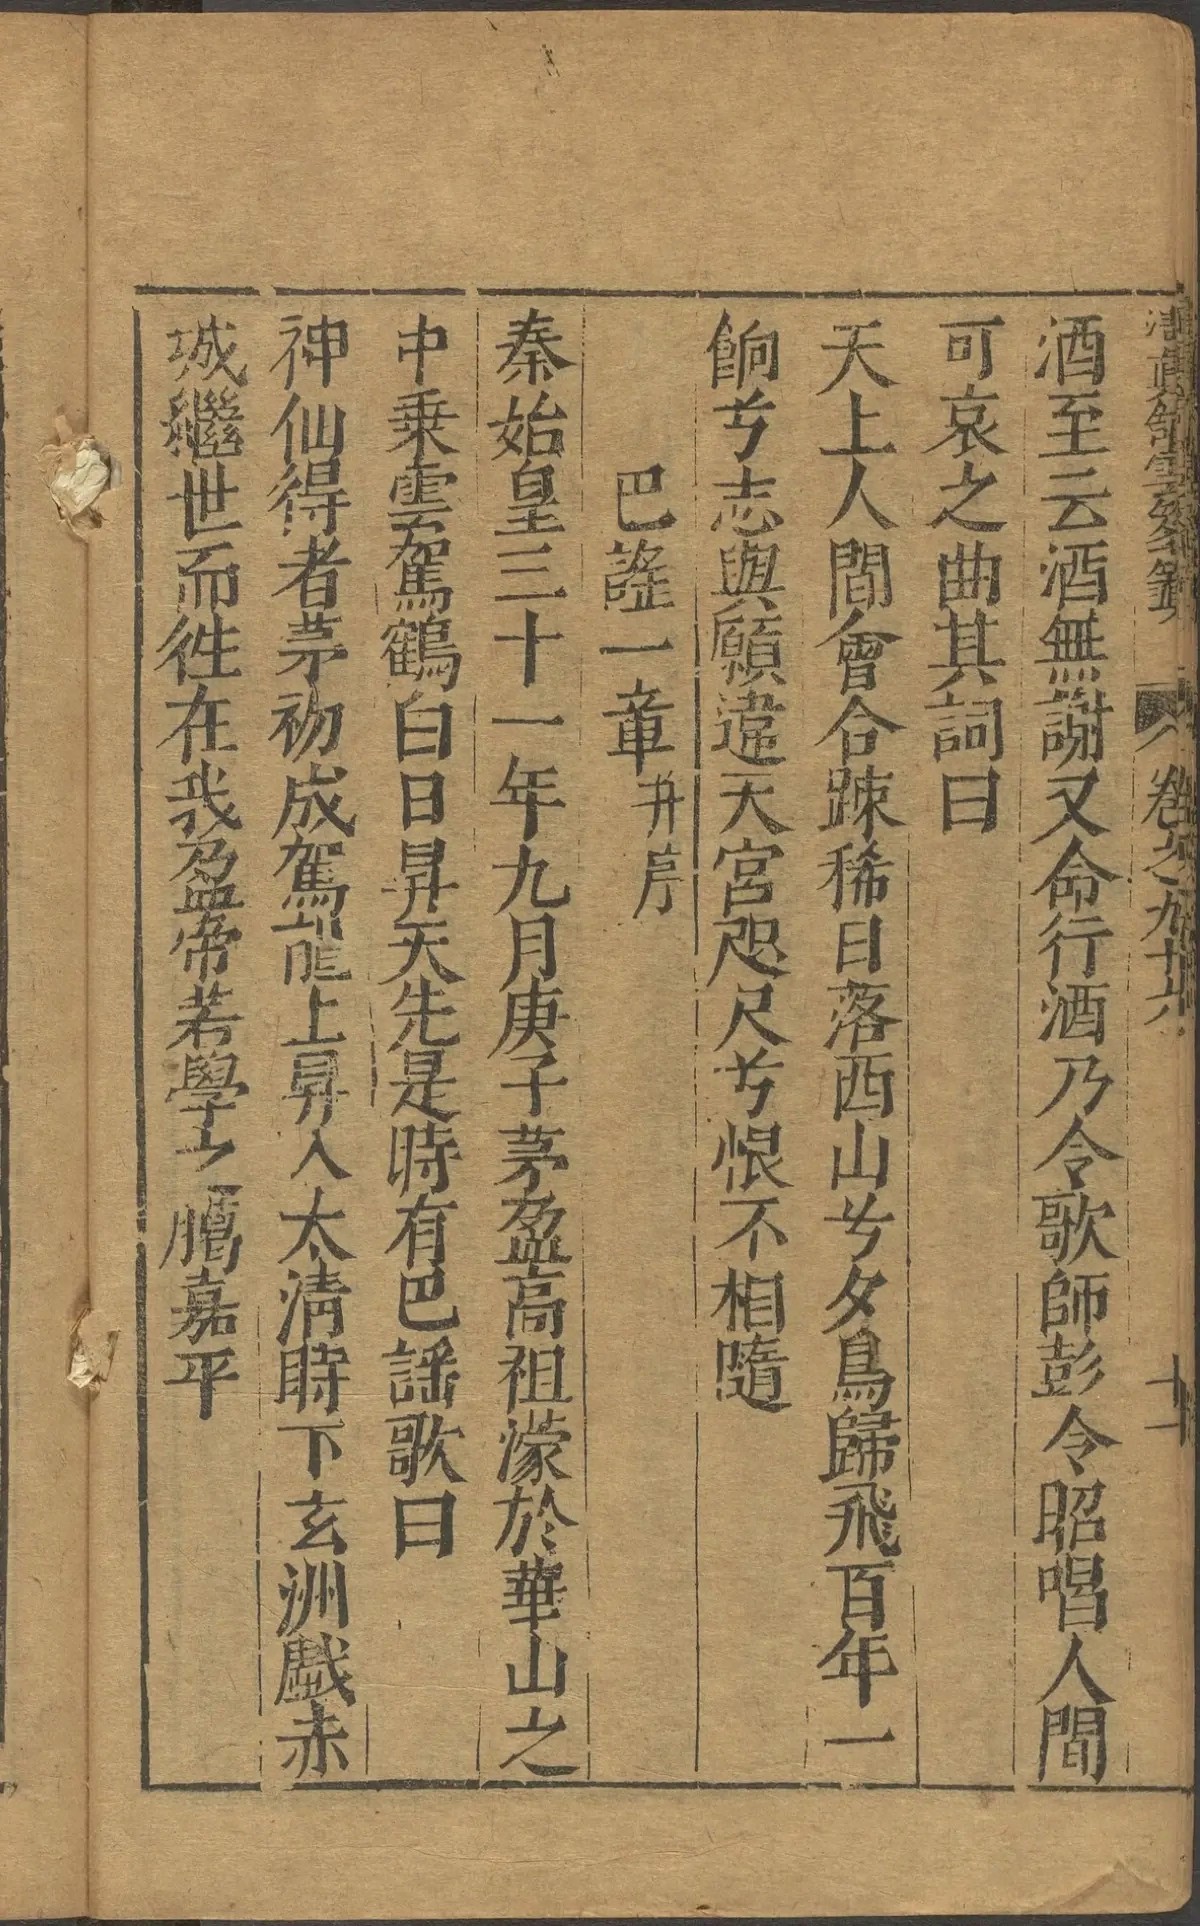 清真館雲笈籤 卷之九十六 十一
酒至云酒無謝又命行酒乃令歌師彭令昭唱人間
可哀之曲其詞曰
天上人間會合踈稀日落西山兮夕鳥歸飛百年一
餉兮志與願違天宮咫尺兮恨不相隨
巴謠一章并序
秦始皇三十一年九月庚子茅盈高祖濛於華山之
中乗雲駕鶴白日昇天先是時有巴謠歌曰
神仙得者茅初成駕龍上昇入太清時下玄洲戲赤
城繼世而徃在我盈帝若學之臘嘉平